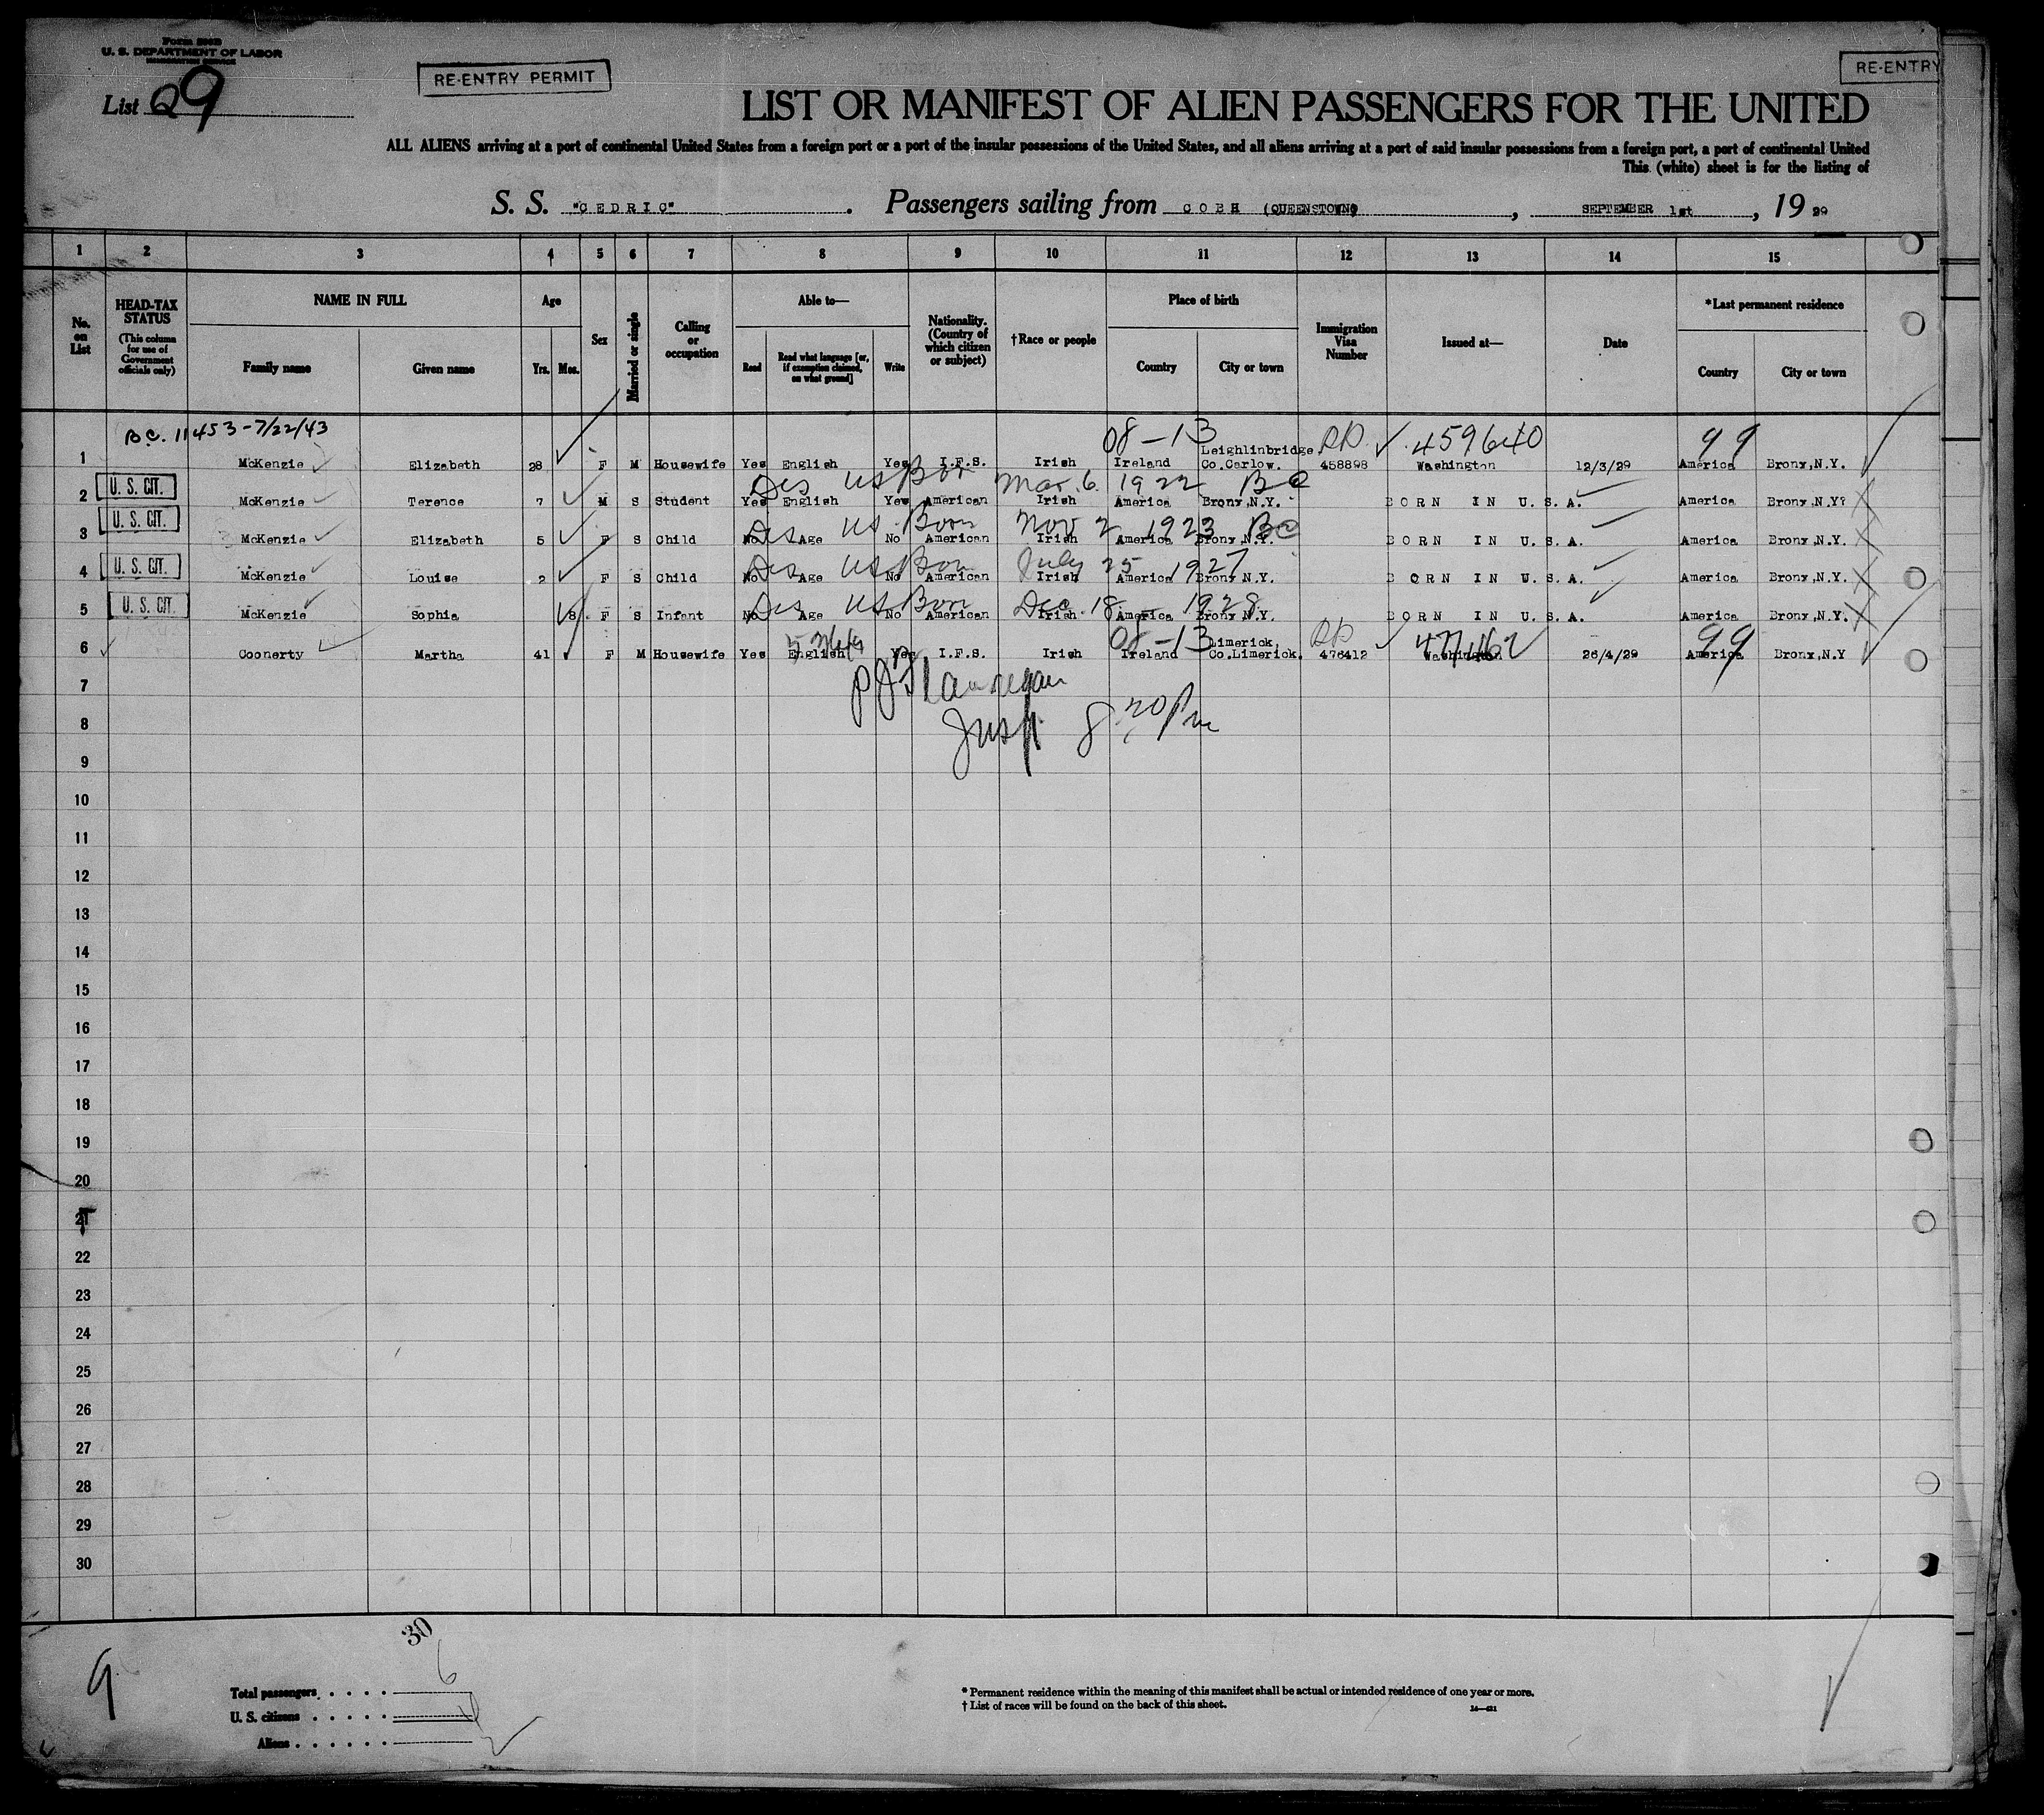 Form 500B
U. S. DEPARTMENT OF LABOR
IMMIGRATION SERVICE
List 29
RE-ENTRY PERMIT
RE-ENTRY
LIST OR MANIFEST OF ALIEN PASSENGERS FOR THE UNITED
ALL ALIENS arriving at a port of continental United States from a foreign port or a port of the insular possessions of the United States, and all aliens arriving at a port of said insular possessions from a foreign port, a port of continental United
This (white) sheet is for the listing of
S. S. "CEDRIC". Passengers sailing from COBH (QUEENSTOWN), SEPTEMBER 1st, 19 29
1 2 3 4 5 6 7 8 9 10 11 12 13 14 15
No. on List
HEAD-TAX STATUS (This column for use of Government officials only)
NAME IN FULL Family name Given name
Age Yrs. Mos.
Sex
Married or single
Calling or occupation
Able to— Read Read what language [or, if exemption claimed, on what ground] Write
Nationality. (Country of which citizen or subject)
†Race or people
Place of birth Country City or town
Immigration Visa Number
Issued at—
Date
*Last permanent residence Country City or town
B.C. 11453-7/22/43 08-13 459640 99
1 McKenzie Elizabeth 28 F M Housewife Yes English Yes I.F.S. Irish Ireland Leighlinbridge, Co.Carlow. 458898 Washington 12/3/29 America Bronx,N.Y.
Des US Born Mar. 6 1922 BC
2 U. S. CIT. McKenzie Terence 7 M S Student Yes English Yes American Irish America Bronx,N.Y. BORN IN U.S.A. America Bronx,N.Y?
Des US. Born Nov 2 1923 BC
3 U. S. CIT. McKenzie Elizabeth 5 F S Child No Age No American Irish America Bronx,N.Y. BORN IN U.S.A. America Bronx,N.Y.
Des US Born July 25 1927
4 U. S. CIT. McKenzie Louise 2 F S Child No Age No American Irish America Bronx N.Y. BORN IN U.S.A. America Bronx,N.Y.
Des US Born Dec. 18 - 1928
5 U. S. CIT. McKenzie Sophia 8 F S Infant No Age No American Irish America Bronx N.Y. BORN IN U.S.A. America Bronx,N.Y.
08-13 99
6 Coonerty Martha 41 F M Housewife Yes English Yes I.F.S. Irish Ireland Limerick, Co.Limerick. 476412 Washington 26/4/29 America Bronx,N.Y
7
PJ Flannegan
8
Insp. 8 20 Pm
9
10
11
12
13
14
15
16
17
18
19
20
21
22
23
24
25
26
27
28
29
30
30
9
Total passengers 6
U. S. citizens
Aliens
* Permanent residence within the meaning of this manifest shall be actual or intended residence of one year or more.
† List of races will be found on the back of this sheet.